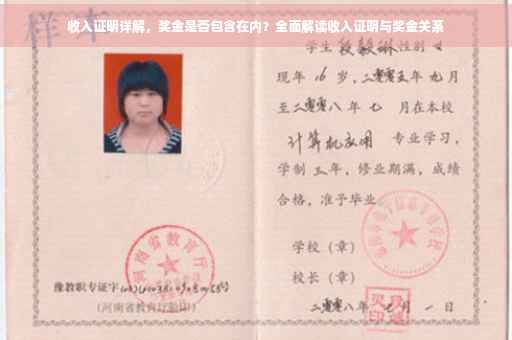 收入证明详解，奖金是否包含在内？全面解读收入证明与奖金关系
样本
学生 段毅琳 性别 女
现年 16 岁，二零零五年 九月
至二零零八年 七 月在本校
计算机应用 专业学习，
学制 三 年，修业期满，成绩
合格，准予毕业。
学校（章）
校长（章）
二零零八年 七 月 一 日
河南省教育厅
豫教职专证字
（河南省教育厅验印）